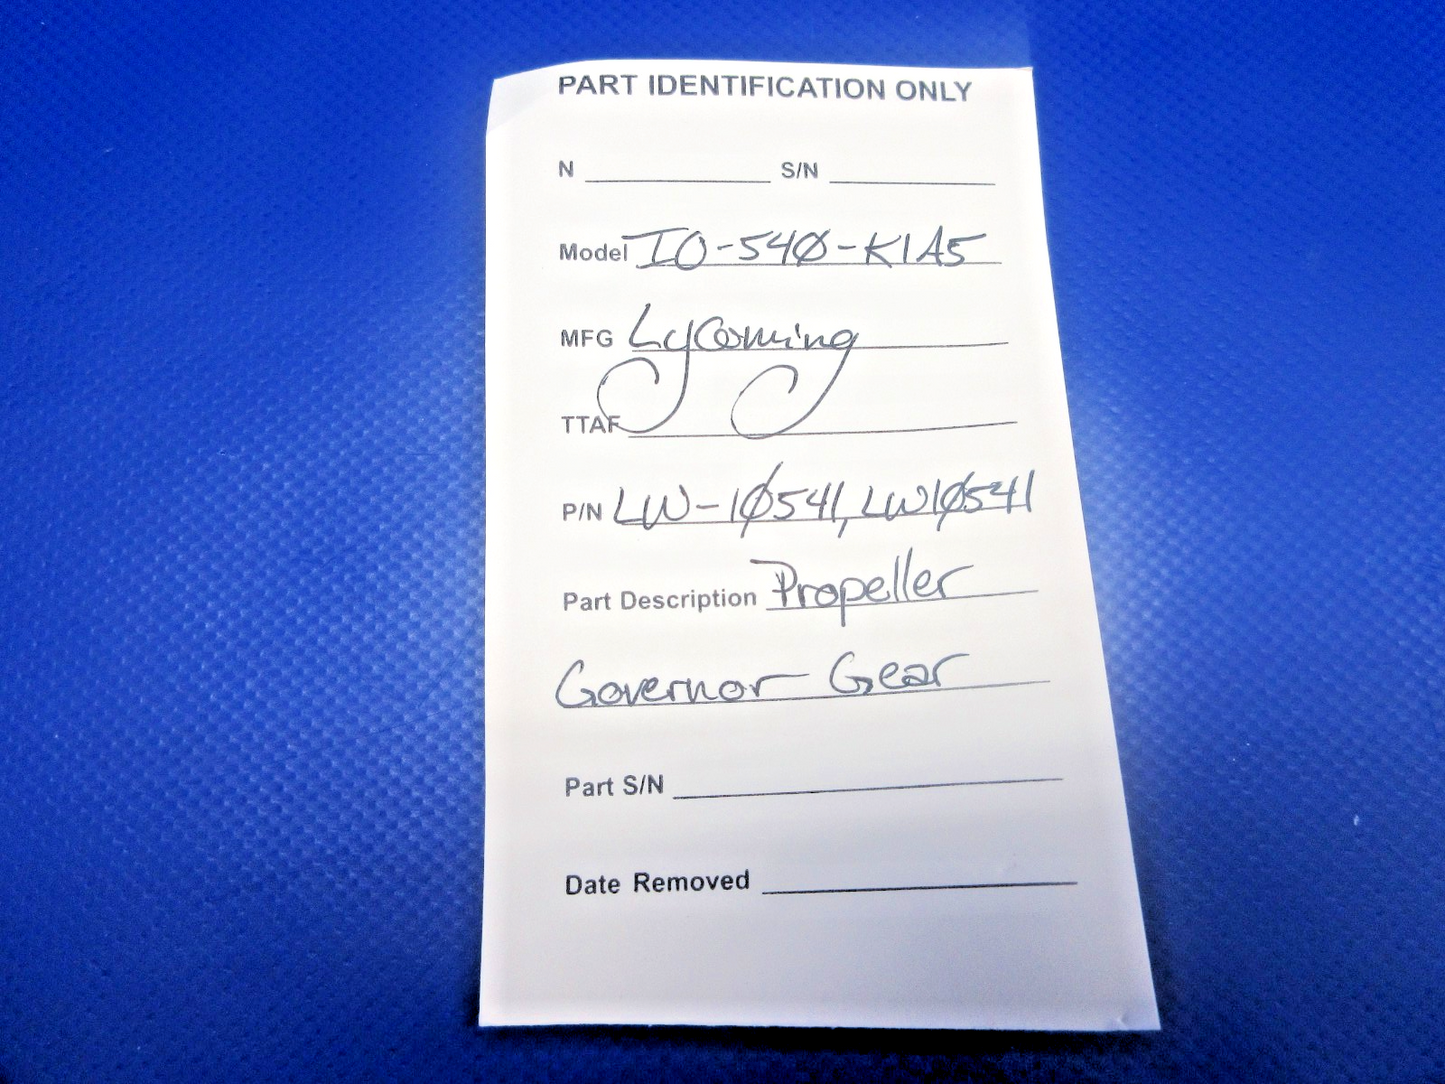 PART IDENTIFICATION ONLY
N S/N
Model IO-540-K1A5
MFG Lycoming
TTAF
P/N LW-10541, LW10541
Part Description Propeller
Governor Gear
Part S/N
Date Removed